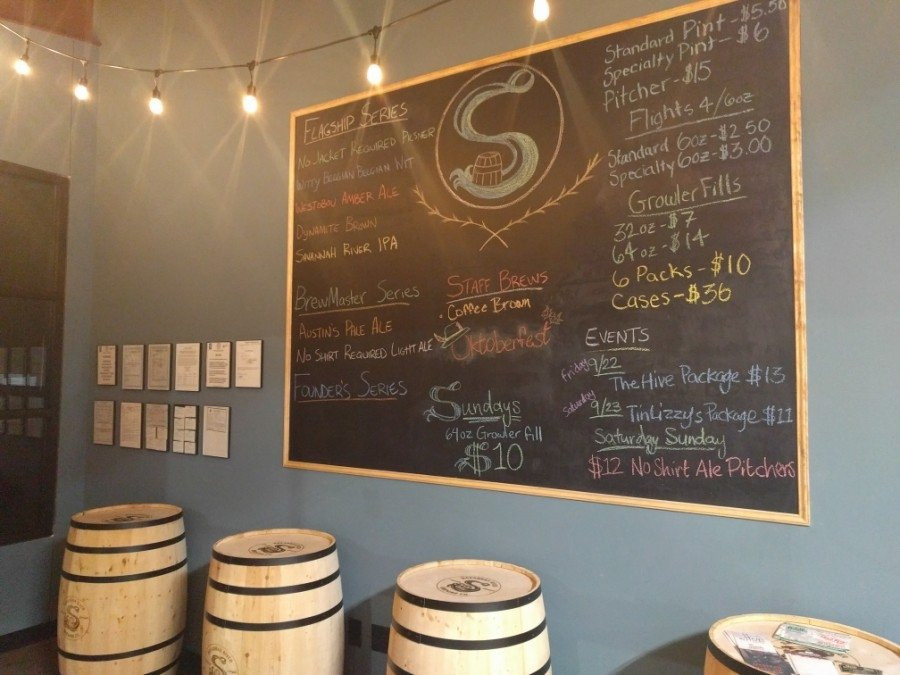 FLAGSHIP SERIES
NO JACKET REQUIRED PILSNER
WITTY BELGIAN BELGIAN WIT
WESTOBOU AMBER ALE
DYNAMITE BROWN
SAVANNAH RIVER IPA
BREWMASTER SERIES
AUSTIN'S PALE ALE
NO SHIRT REQUIRED LIGHT ALE
FOUNDER'S SERIES
S
STAFF BREWS
· Coffee Brown
Oktoberfest
Sundays
64oz Growler fill
$10
Standard Pint - $5.50
Specialty Pint - $6
Pitcher - $15
Flights 4/6oz
Standard 6oz - $2.50
Specialty 6oz - $3.00
Growler Fills
32oz - $7
64oz - $14
6 Packs - $10
Cases - $36
EVENTS
Friday 9/22
The Hive Package $13
Saturday 9/23 TinLizzy's Package $11
Saturday Sunday
$12 No Shirt Ale Pitchers